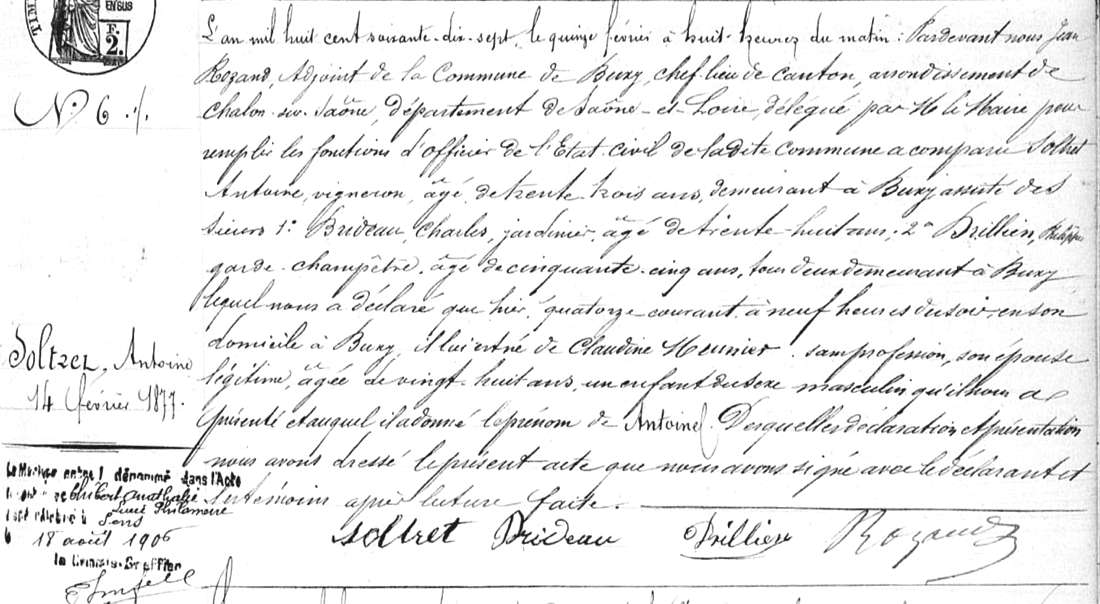 TIM
EN SUS
F.
2.
N° 6 ./.
Soltret, Antoine
14 février 1877.
Le Mariage entre l dénommé dans l'Acte
Philomène
a été célébré à Sens
le 18 août 1906
le Commis-Greffier
L'an mil huit cent soixante-dix-sept, le quinze février à huit heures du matin : Pardevant nous Jean
Rozand, Adjoint de la Commune de Buxy, chef-lieu de canton, arrondissement de
Chalon-sur-Saône, département de Saône-et-Loire, délégué par M le Maire pour
remplir les fonctions d'officier de l'Etat-civil de ladite Commune a comparu Soltret
Antoine, vigneron, âgé de trente trois ans, demeurant à Buxy assisté des
sieurs 1° Brideau, Charles, jardinier, âgé de trente-huit ans ; 2° Drillien, Philippe
garde-champêtre, âgé de cinquante-cinq ans, tous deux demeurant à Buxy
lequel nous a déclaré que hier, quatorze courant à neuf heures du soir, en son
domicile à Buxy, il lui est né de Claudine Meunier, sans profession, son épouse
légitime, âgée de vingt-huit ans, un enfant du sexe masculin qu'il nous a
présenté et auquel il a donné le prénom de Antoine. Desquelles déclaration et présentation
nous avons dressé le présent acte que nous avons signé avec le déclarant et
les témoins après lecture faite.
Soltret Brideau Drillien Rozand